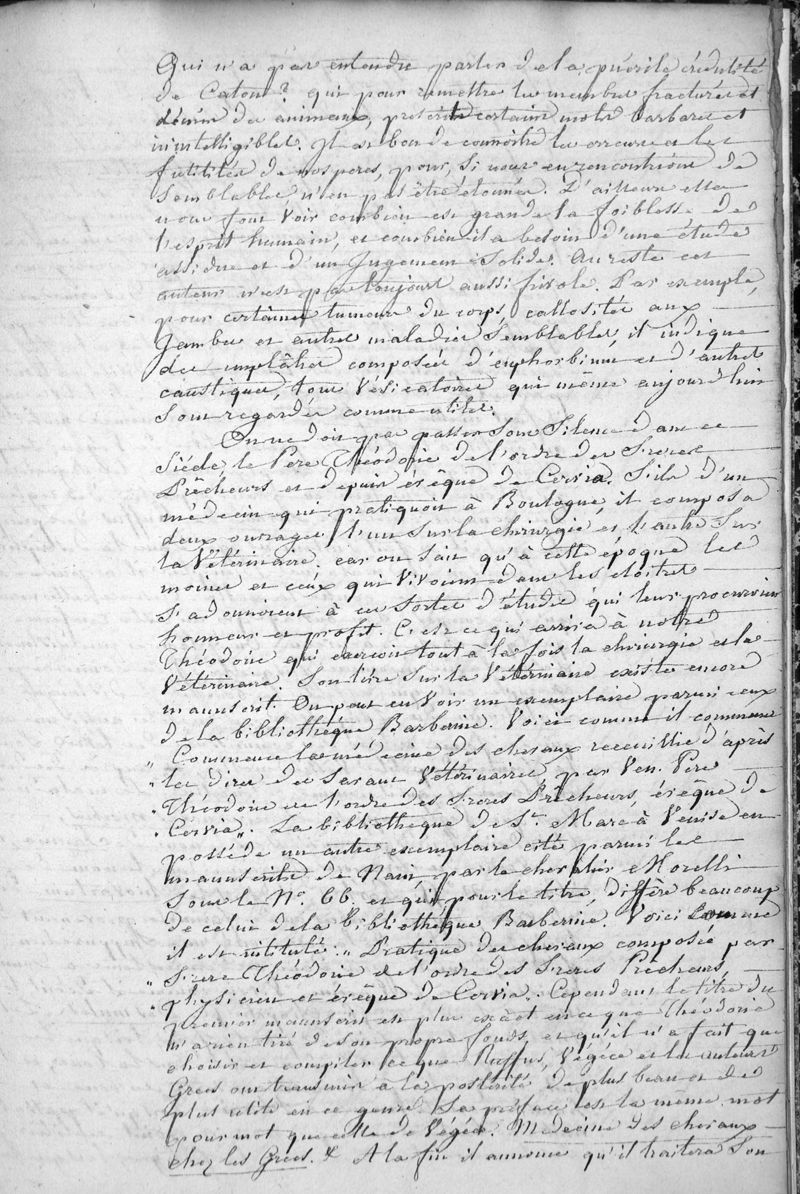 Qui n'a pas entendu parler de la puérile crédulité
de Caton? qui pour remettre les membres fracturés et
démis des animaux, prescrit certains mots barbares et
inintelligibles. Il est bon de connoître les erreurs et les
futilités de nos peres, pour, si nous en rencontrions de
semblables n'en pas être étonnés. D'ailleurs elles
nous font voir combien est grande la foiblesse de
l'esprit humain, et combien il a besoin d'une étude
assidue et d'un Jugement Solide. Au reste cet
auteur n'est pas toujours aussi frivole. Par exemple,
pour certaines tumeurs du corps, callosités aux
Jambes et autres maladies Semblables, il indique
des emplâtres composés d'euphorbium et d'autres
caustiques, tous Vésicatoires qui même aujourd'hui
Sont regardés comme utiles.
On ne doit pas passer Sous Silence dans ce
Siécle, le Pere Théodoric de l'ordre des Freres
Prêcheurs et depuis évêque de Cervia. Fils d'un
médecin qui pratiquoit à Boulogne, il composa
deux ouvrages l'un Sur la chirurgie et l'autre Sur
la Vétérinaire, car on Sait qu'à cette époque les
moines et ceux qui Vivoient dans les cloitres
S'adonnoient à ces Sortes d'étude qui leur procuroient
honneur et profit. C'est ce qui arriva à notre
Théodoric qui exercoit tout à la fois la chirurgie et la
Vétérinaire. Son livre Sur la Vétérinaire existe encore
manuscrit. On peut en Voir un exemplaire parmi ceux
de la bibliothéque Barberine. Voici comme il commence
" Commence la médecine des chevaux recueillie d'après
" les dires de Savants Vétérinaires, par Ven. Pere
" Théodoric de l'ordre des Freres Prêcheurs, évêque de
" Cervia". La bibliotheque de St. Marc à Venise en
posséde un autre exemplaire cité parmi les
manuscrits de Nani, par le chevalier Morelli
Sous le No. 66. et qui pour le titre, differe beaucoup
de celui de la bibliothéque Barberine. Voici comme
il est intitulé. " Pratique des chevaux composée par
" Frere Théodoric de l'ordre des Freres Prêcheurs,
" physicien et évêque de Cervia. Cependant le titre du
premier manuscrit est plus exact en ce que Théodoric
n'a rien tiré de son propre fonds, et qu'il n'a fait que
choisir et compiler ce que Ruffus, Végéce et les auteurs
Grecs ont transmis à la postérité de plus beau et de
plus utile en ce genre. Sa préface est la même mot
pour mot que celle de Végéce. Medecine des chevaux
chez les Grecs. &. A la fin il annonce qu'il traitera Son